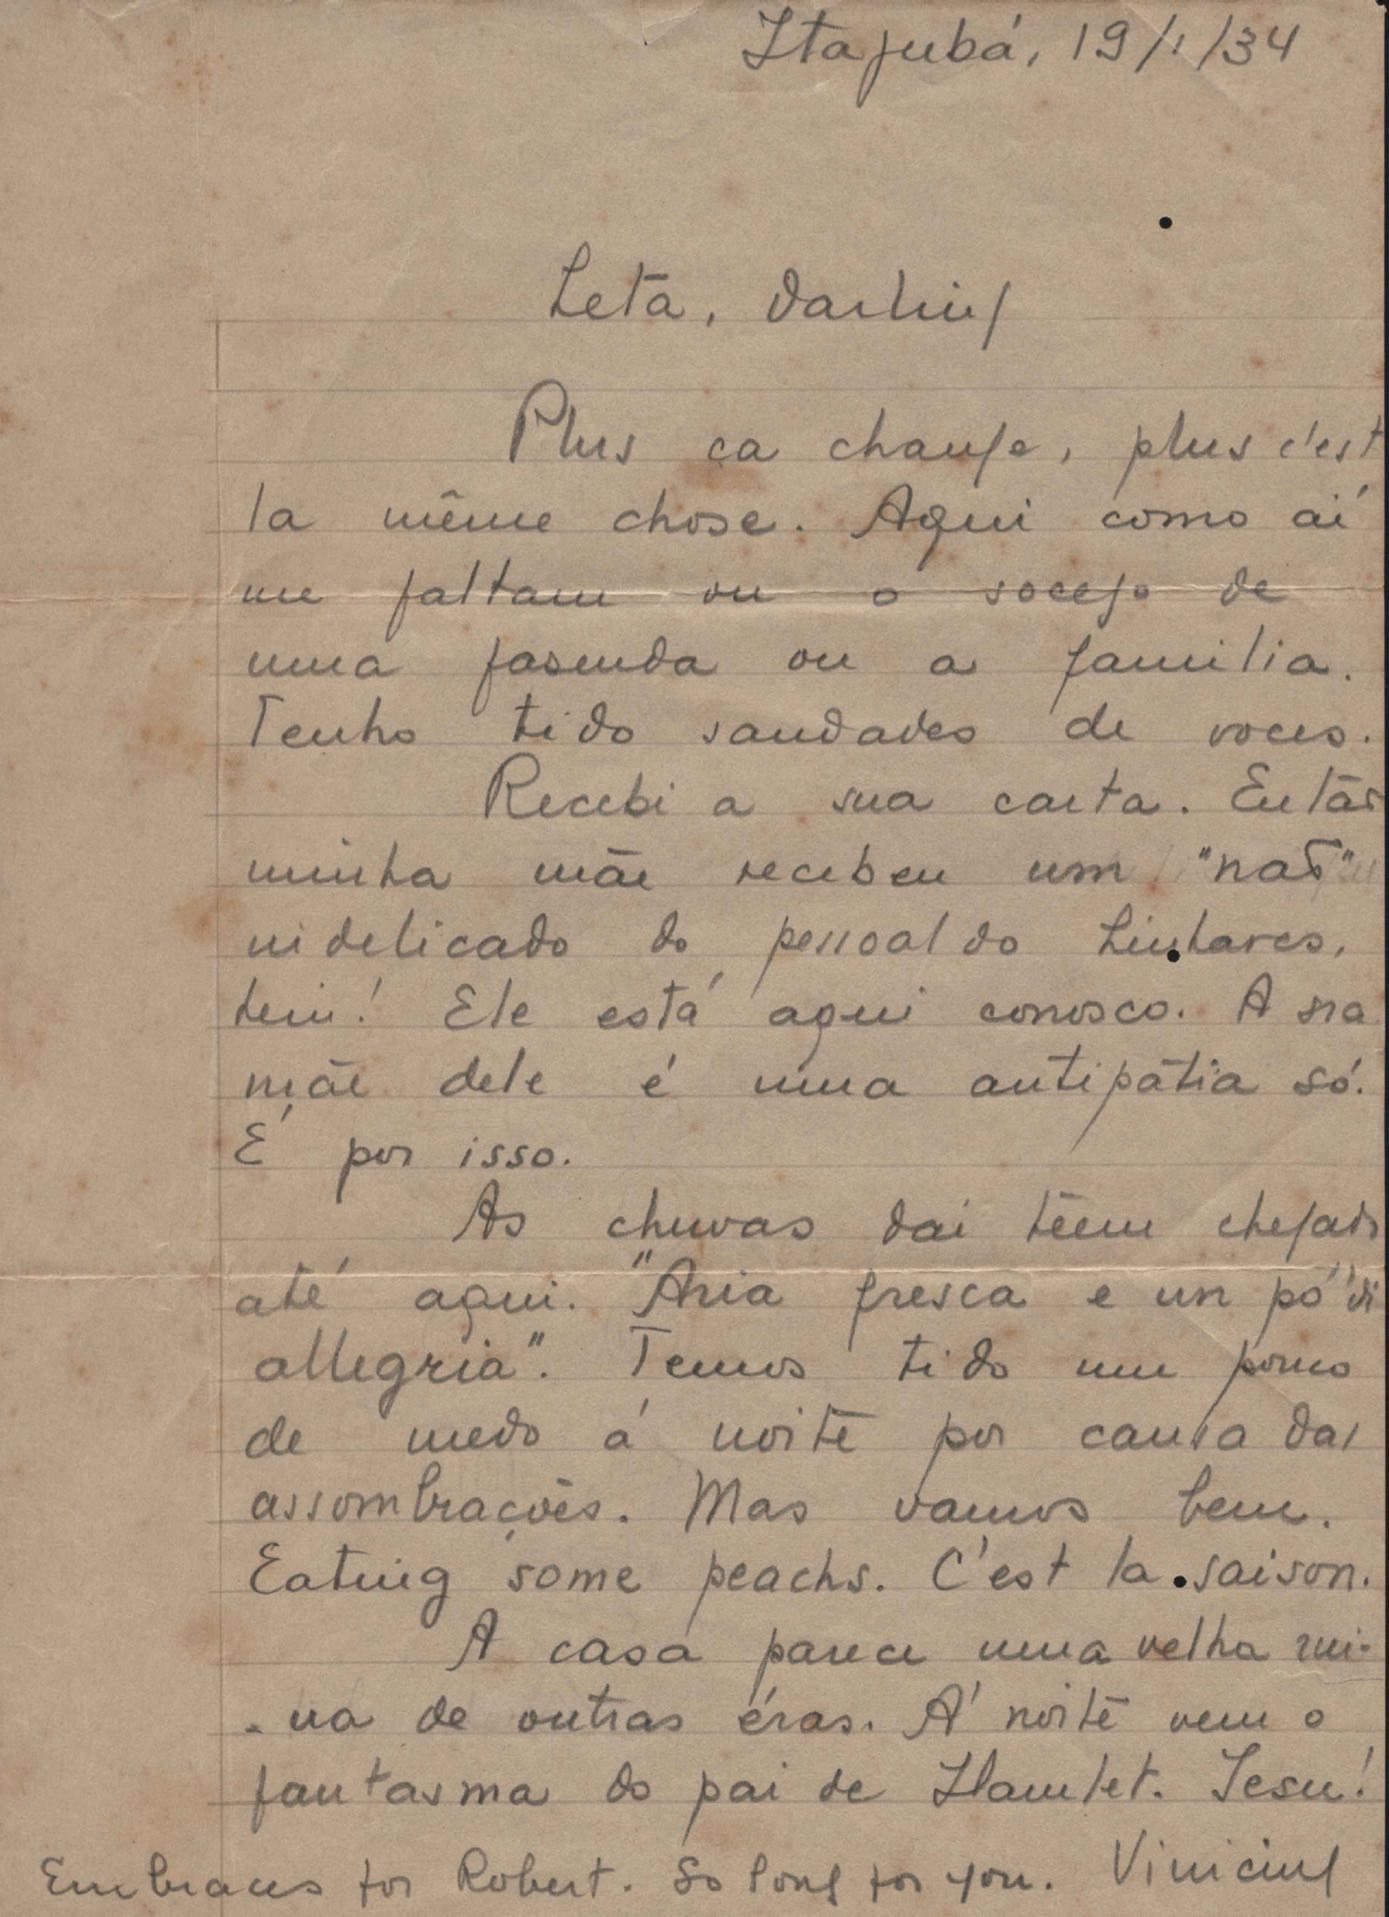 Itajubá, 19/1/34
Leta, darling
Plus ça change, plus c'est
la même chose. Aqui como aí
me faltam ou o socego de
uma fasenda ou a familia.
Tenho tido saudades de voces.
Recebi a sua carta. Então
minha mãe recebeu um "não"
indelicado do pessoal do Linhares,
hein! Ele está aqui conosco. A sra
mãe dele é uma antipátia só.
É por isso.
As chuvas daí têem chegado
até aqui. "Aria fresca e un pó di
allegria". Temos tido um pouco
de medo á noite por causa das
assombrações. Mas vamos bem.
Eating some peachs. C'est la saison.
A casa parece uma velha rui-
-na de outras éras. Á noite vem o
fantasma do pai de Hamlet. Jesu!
Embraces for Robert. So long for you. Vinicius